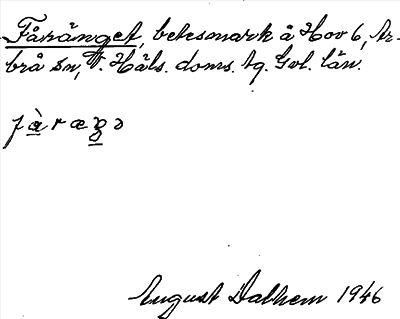 Fåränget, betesmark å Hov 6, Ar-
brå sn, V. Häls. doms. tg. Gvl. län.
fàræŋə
August Dalhem 1946